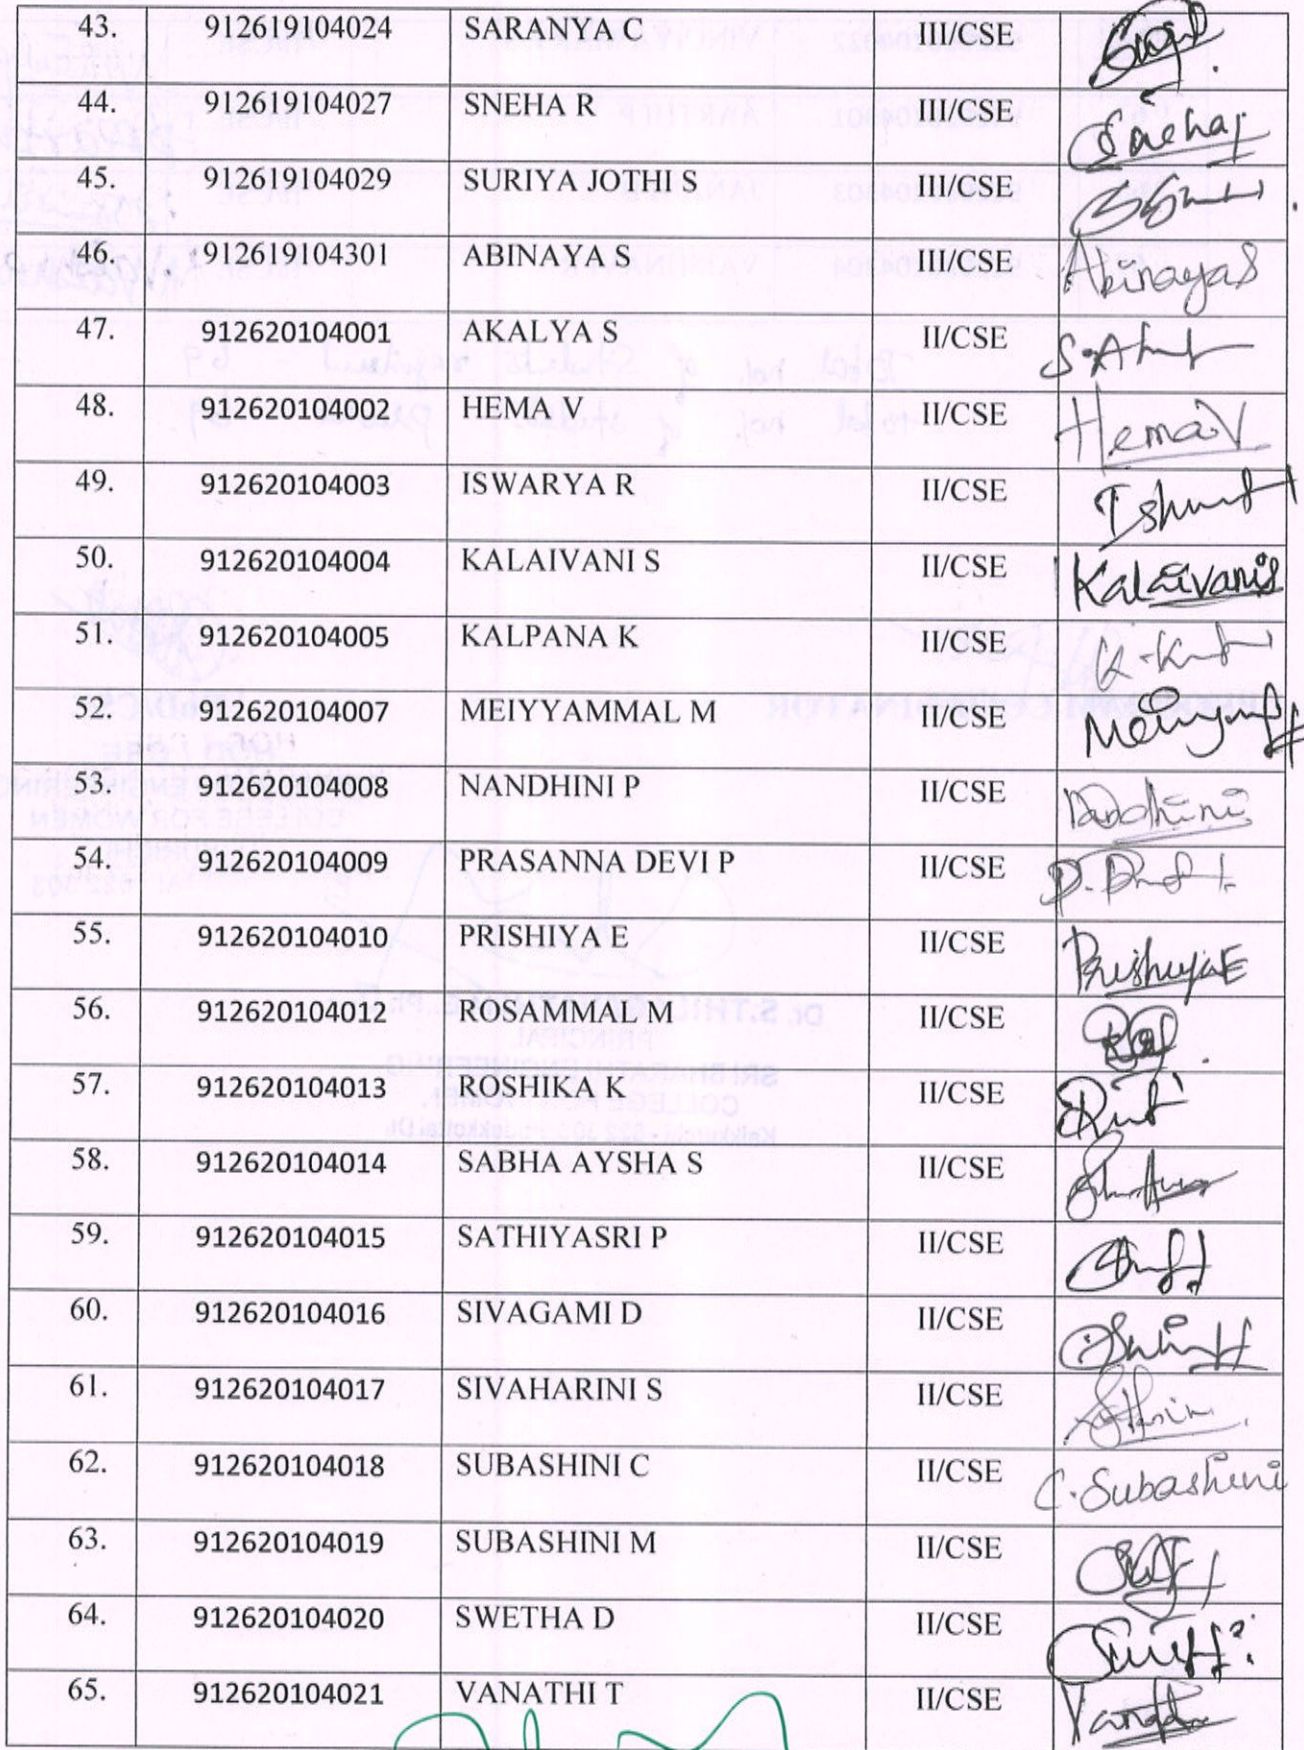 43. 912619104024 SARANYA C III/CSE
44. 912619104027 SNEHA R III/CSE Sneha
45. 912619104029 SURIYA JOTHI S III/CSE
46. 912619104301 ABINAYA S III/CSE Abinaya S
47. 912620104001 AKALYA S II/CSE
48. 912620104002 HEMA V II/CSE Hema V
49. 912620104003 ISWARYA R II/CSE
50. 912620104004 KALAIVANI S II/CSE Kalaivani S
51. 912620104005 KALPANA K II/CSE
52. 912620104007 MEIYYAMMAL M II/CSE
53. 912620104008 NANDHINI P II/CSE Nandhini
54. 912620104009 PRASANNA DEVI P II/CSE
55. 912620104010 PRISHIYA E II/CSE
56. 912620104012 ROSAMMAL M II/CSE
57. 912620104013 ROSHIKA K II/CSE
58. 912620104014 SABHA AYSHA S II/CSE
59. 912620104015 SATHIYASRI P II/CSE
60. 912620104016 SIVAGAMI D II/CSE
61. 912620104017 SIVAHARINI S II/CSE
62. 912620104018 SUBASHINI C II/CSE C. Subashini
63. 912620104019 SUBASHINI M II/CSE
64. 912620104020 SWETHA D II/CSE
65. 912620104021 VANATHI T II/CSE